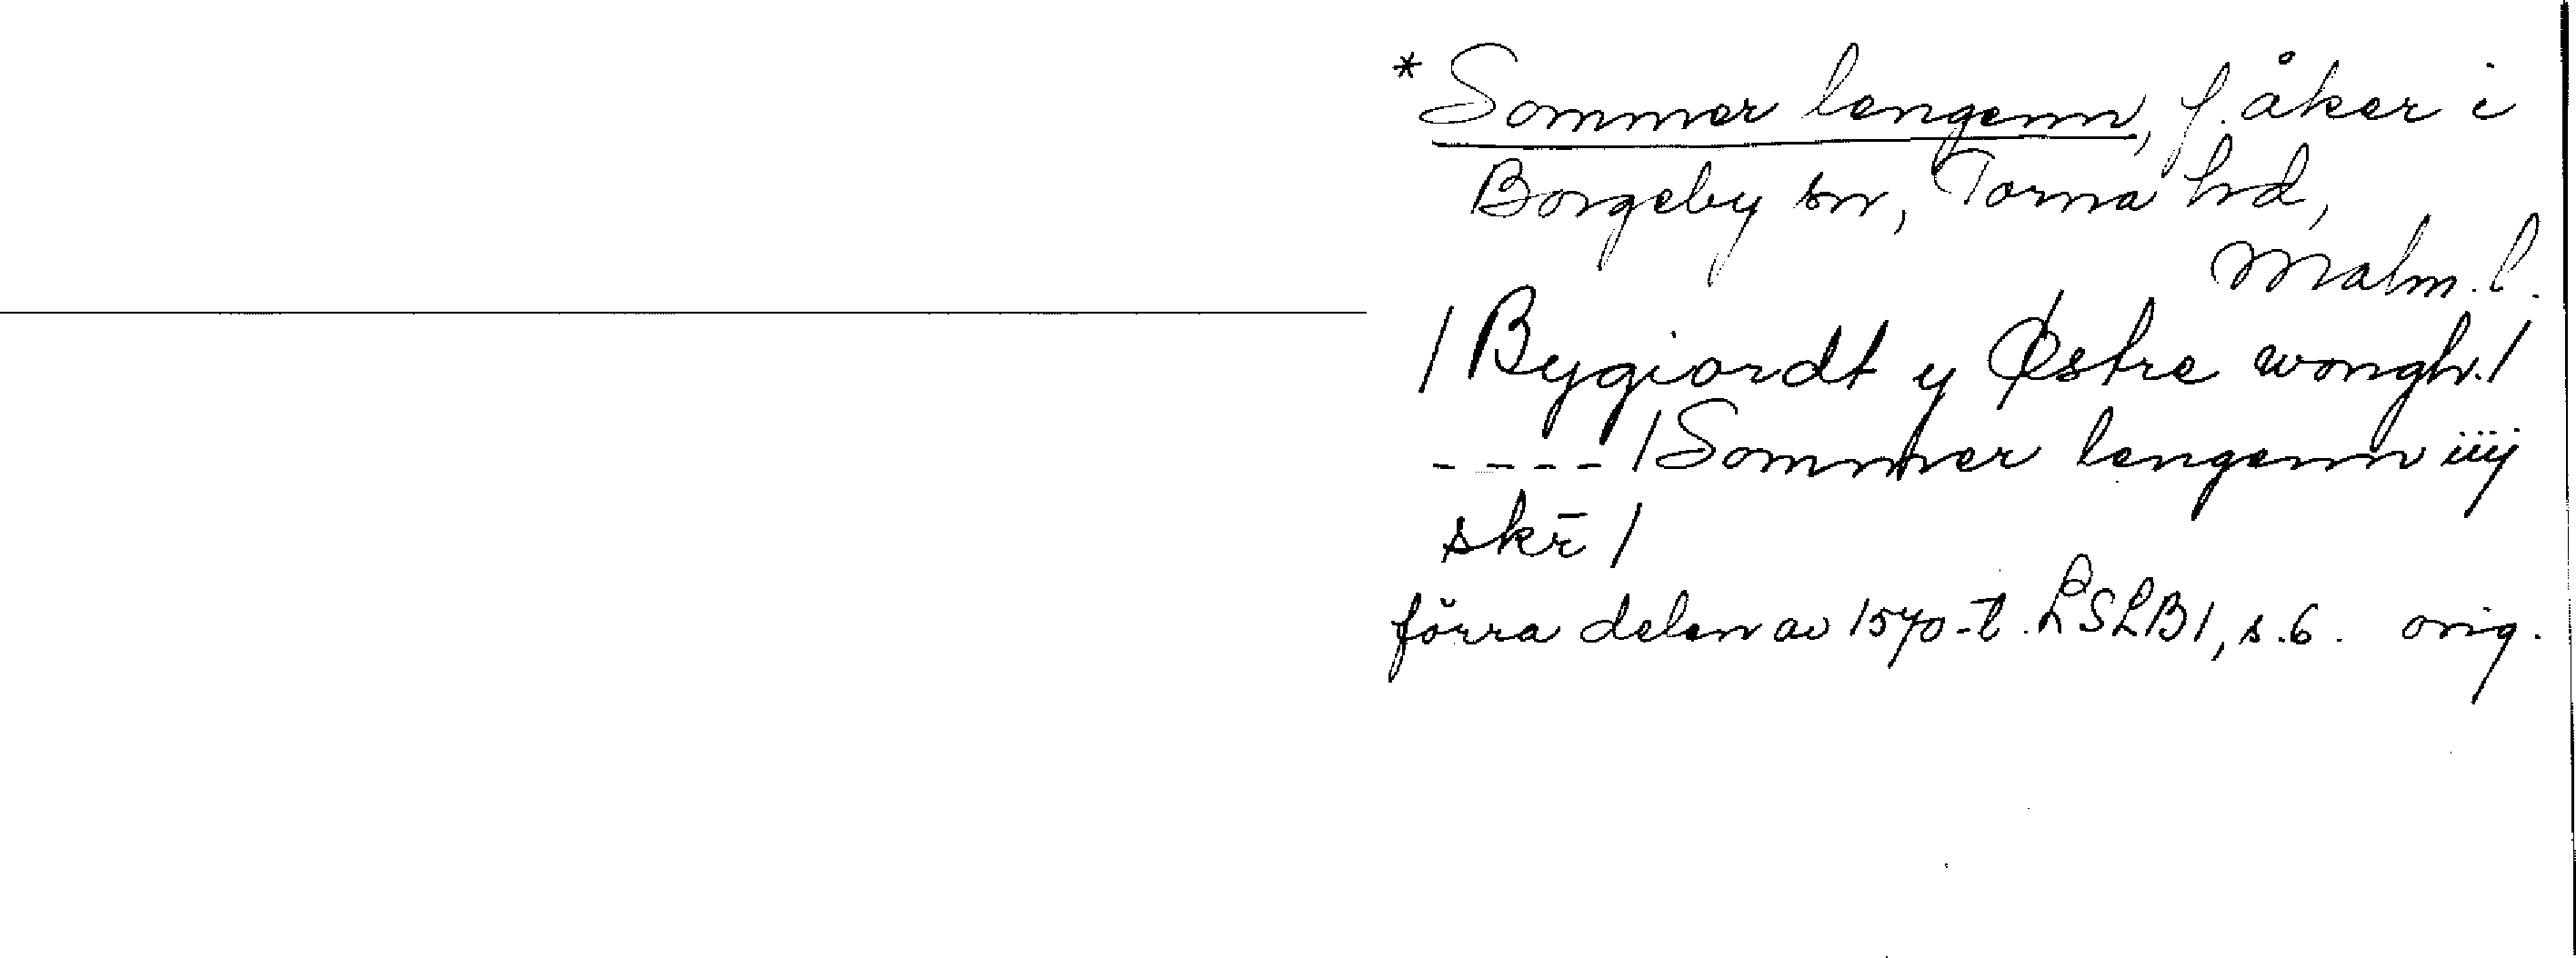 * Sommer lengenn, f. åker i
Borgeby sn, Torna hd,
Malm. l.
/ Bygiordt y Østre wongh. /
---- / Sommer lengenn iiij
skr̄ /
förra delen av 1570-t. LSLB1, s. 6. orig.